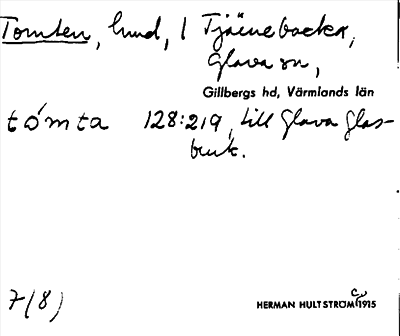 Tomten, hmd, / Tjäneboeker,
Glava sn,
Gillbergs hd, Värmlands län
tómta 128:219, till Glava Glas-
bruk.
7(8)
HERMAN HULTSTRÖM C 1915